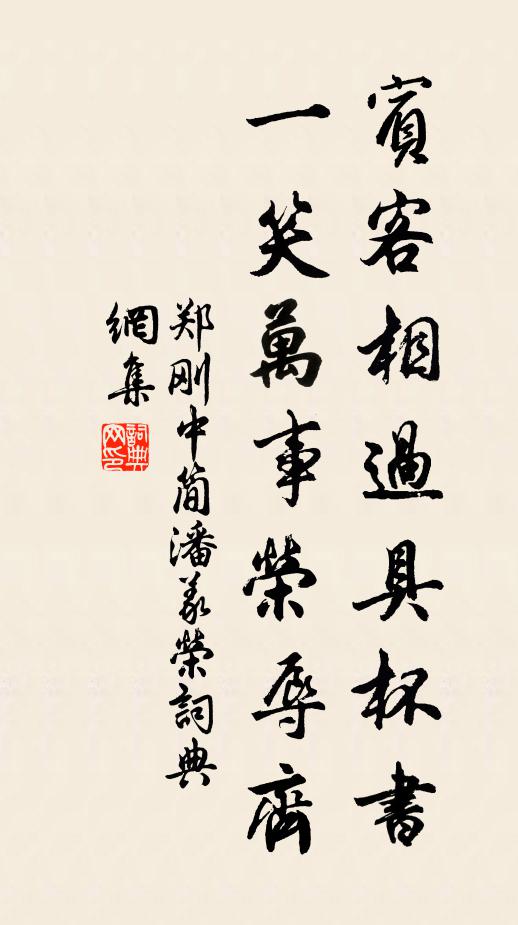 賓客相過具杯書
一笑萬事榮辱齊
郑刚中简潘义榮詞典
網集
詞典網印